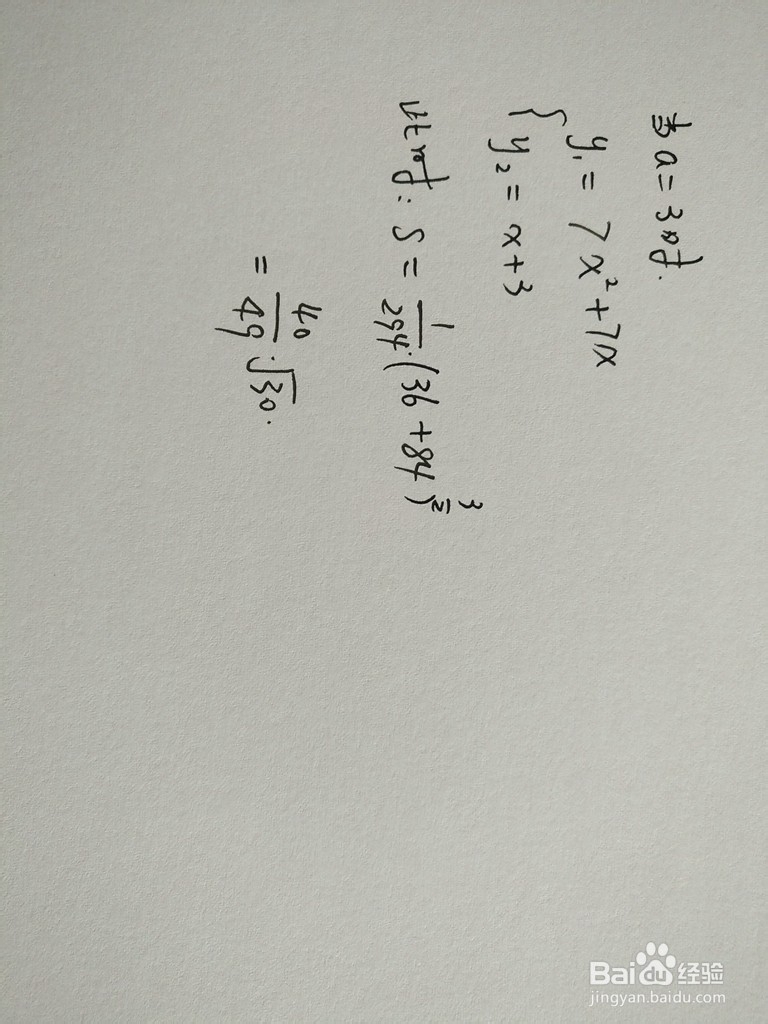 当a=3时.
{ y₁ = 7x²+7x
y₂ = x+3
此时: S = 1/294·(36+84)^(3/2)
= 40/49·√30.
Baidu经验
jingyan.baidu.com